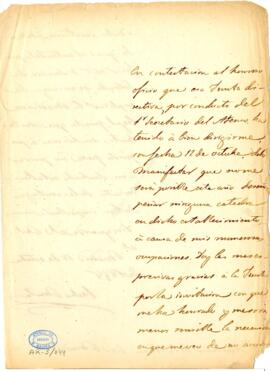 En contestacion al honroso
oficio que esa Junta di-
rectiva, por conducto del
1er Secretario del Ateneo ha
tenido á bien dirigirme
con fecha 12 de Octubre, debo
manifestar que no me
será posible este año desem-
peñar ninguna catedra
en dicho establecimiento
á causa de mis numerosas
ocupaciones. Doy las mas es-
presivas gracias á la Junta
por la invitacion con que
me ha honrado y me es
menor la necesidad
en que me veo de no
AR-3/